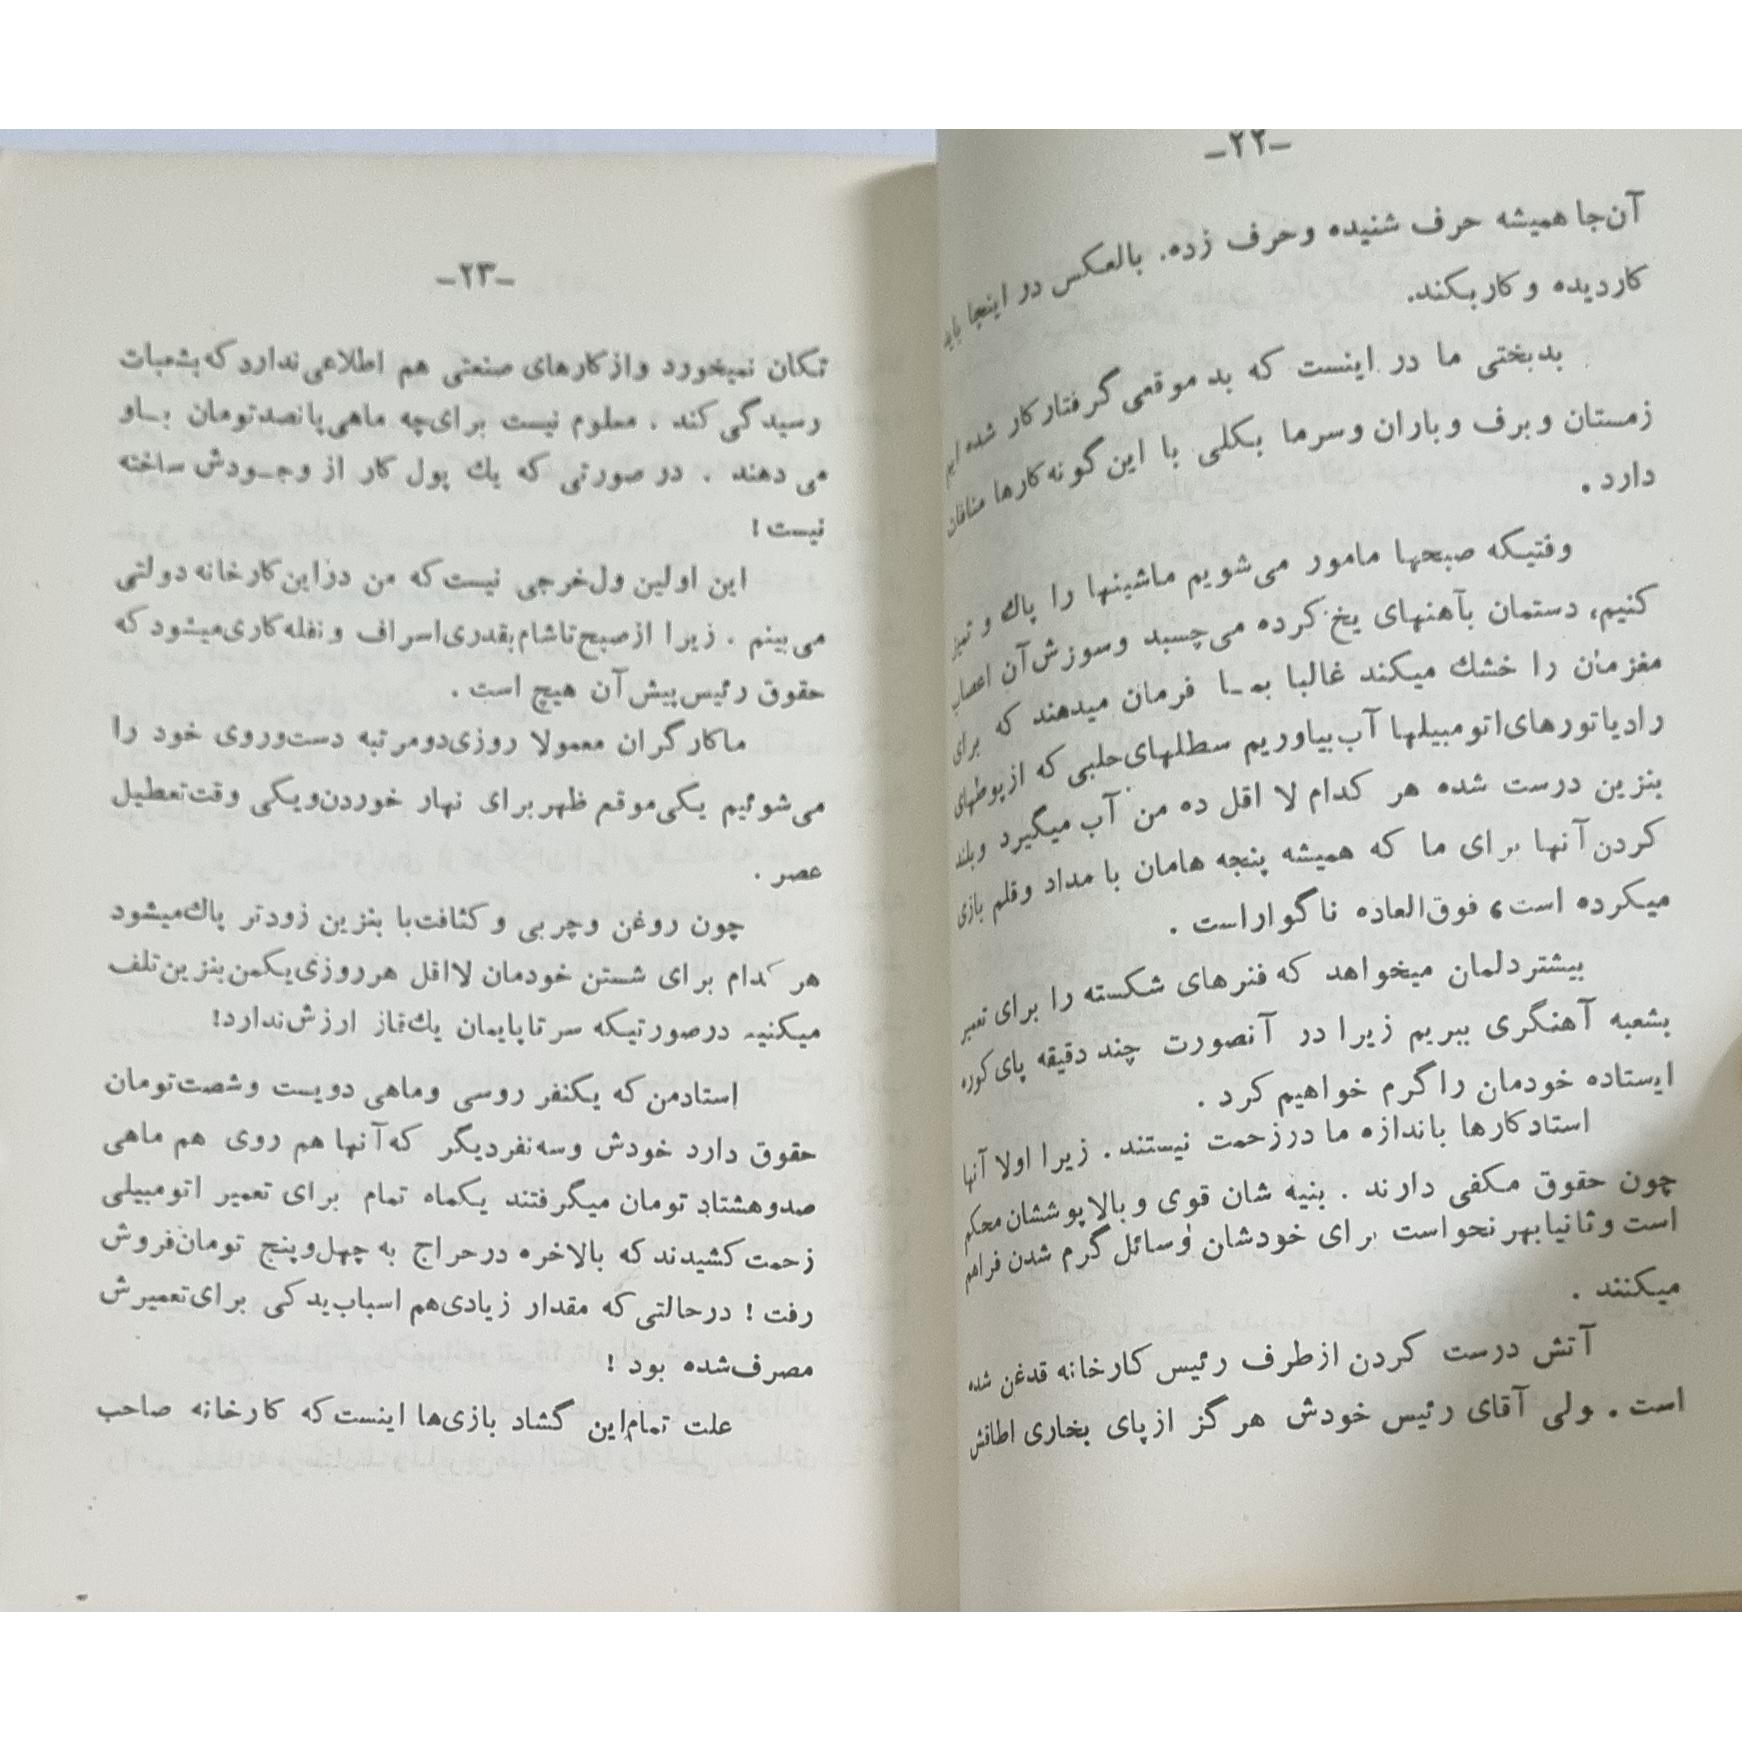 -۲۲-
آن‌جا همیشه حرف شنیده وحرف زده. بالعکس در اینجا باید
کاردیده و کاربکند.
بدبختی ما در اینست که بد موقعی گرفتارکار شده ایم
زمستان وبرف وباران وسرما بکلی با این گونه‌کارها منافات
دارد .
وقتیکه صبحها مامور می‌شویم ماشینها را پاك و تمیز
کنیم، دستمان بآهنهای یخ‌کرده می‌چسبد وسوزش‌آن اعصاب
مغزمان را خشك میکند غالبا بمـا فرمان میدهند که برای
رادیاتورهای‌اتومبیلها آب‌بیاوریم سطلهای‌حلبی که ازپوطهای
بنزین درست شده هر کدام لا اقل ده من آب میگیرد وبلند
کردن‌آنها برای ما که همیشه پنجه هامان با مداد وقلم بازی
میکرده است، فوق‌العاده ناگواراست .
بیشتردلمان میخواهد که فنرهای شکسته را برای تعمیر
بشعبه آهنگری ببریم زیرا در آنصورت چند دقیقه پای‌کوره
ایستاده خودمان راگرم خواهیم کرد .
استادکارها باندازه ما درزحمت نیستند. زیرا اولا آنها
چون حقوق مکفی دارند . بنیه شان قوی وبالاپوششان محکم
است وثانیابهر نحواست برای خودشان وسائل گرم شدن فراهم
میکنند .
آتش درست کردن ازطرف رئیس کارخانه قدغن شده
است . ولی آقای رئیس خودش هرگز ازپای بخاری اطاقش
-۲۳-
تکان نمیخورد وازکارهای صنعتی هم اطلاعی‌ندارد که‌بشعبات
رسیدگی کند . معلوم نیست برای‌چه ماهی‌پانصدتومان بـاو
می دهند . در صورتی که یك پول کار از وجـودش ساخته
نیست !
این اولین ول‌خرجی نیست‌که من دراین‌کارخانه دولتی
می‌بینم . زیرا ازصبح‌تاشام‌بقدری‌اسراف ونفله‌کاری‌میشود که
حقوق رئیس‌پیش‌آن هیچ است .
ماکارگران معمولا روزی‌دومرتبه دست‌وروی خود را
می‌شوئیم یکی‌موقع ظهربرای نهار خوردن‌ویکی وقت‌تعطیل
عصر .
چون روغن وچربی و کثافت‌با بنزین زودتر پاك‌میشود
هر کدام برای شستن خودمان لااقل هرروزی‌یکمن‌بنزین‌تلف
میکنیم درصورتیکه سرتاپایمان یك‌قاز ارزش‌ندارد!
استادمن که یکنفر روسی وماهی دویست وشصت‌تومان
حقوق دارد خودش وسه‌نفردیگر که‌آنها هم روی هم ماهی
صدوهشتاد تومان میگرفتند یکماه تمام برای تعمیر اتومبیلی
زحمت‌کشیدند که بالاخره درحراج به چهل‌وپنج تومان‌فروش
رفت ! درحالتی‌که مقدار زیادی‌هم اسباب‌یدکی برای‌تعمیرش
مصرف‌شده بود !
علت تمام‌این گشاد بازی‌ها اینست‌که کارخانه صاحب